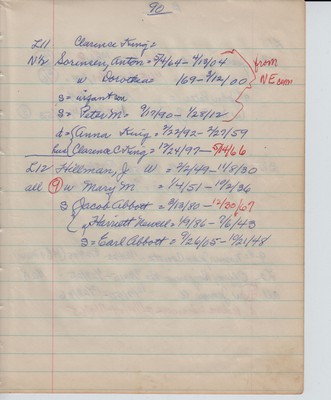 90
L11 Clarence King =
N½ Sorensen, Anton = 5/4/64 - 4/13/04
w Dorothea = 169 - 3/12/00
from NE cem
s = infant son
s = Peter M = 9/17/90 - 1/28/12
d = Anna King = 7/22/92 - 2/27/59
hus Clarence C King = 12/24/97 - 5/14/66
L12 Hillman, J W = 2/2/49 - 11/8/30
all 9 w Mary M = 1/4/51 - 10/2/36
s Jacob Abbott = 2/13/80 - 12/20/67
w Harriett Newell = 1/9/86 - 7/6/43
s = Earl Abbott = 9/26/05 - 10/21/48